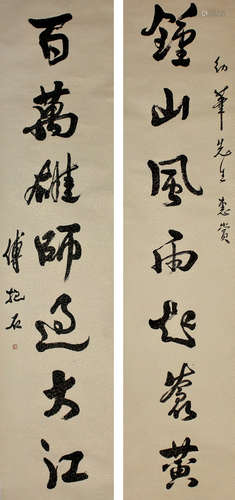 幼華先生惠赏
鍾山風雨起蒼黃
百萬雄師過大江
傅抱石